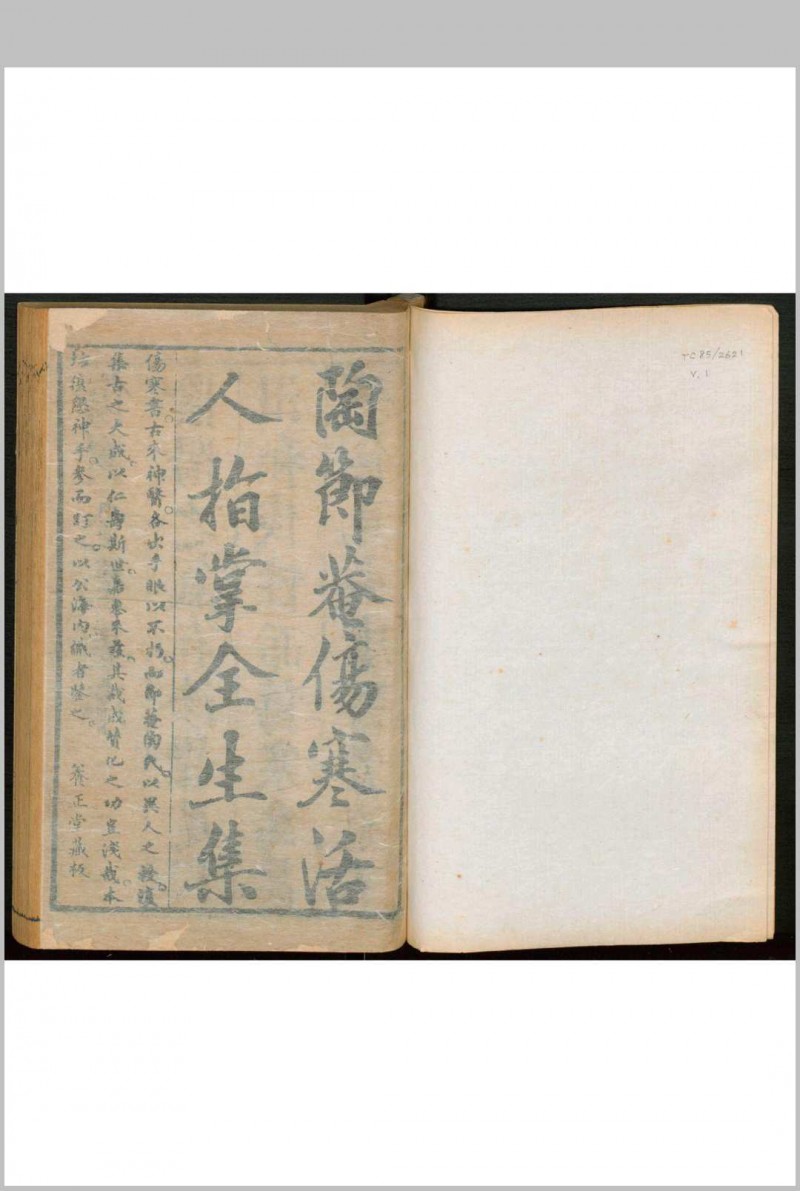 TC85/2621
V. 1
陶節菴傷寒活
人指掌全生集
傷寒書古來神醫各出手眼以不朽而節菴陶氏以異人之授復
集古之大成以仁壽斯世其裁成贊化之功豈淺哉本
復懇神手參而訂之以公海内識者鑒之 養正堂藏板